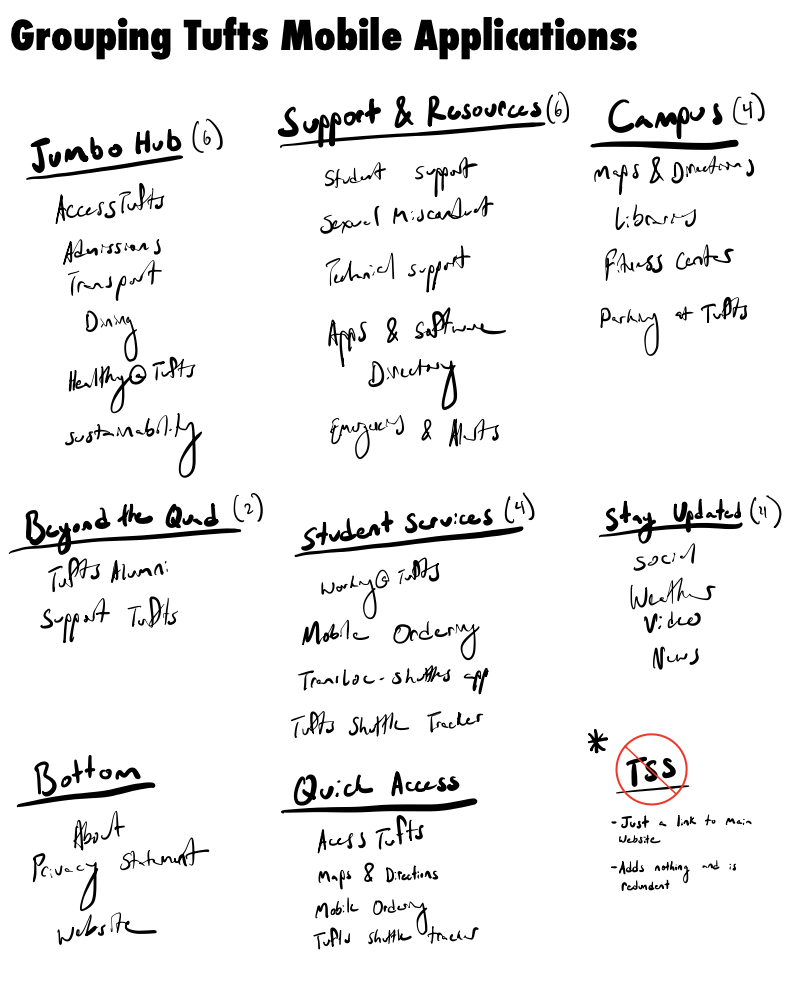 Grouping Tufts Mobile Applications:
Jumbo Hub (6)
AccessTufts
Admissions
Transport
Dining
Healthy@Tufts
Sustainability
Support & Resources (6)
Student support
Sexual Misconduct
Technical support
Apps & Software
Directory
Emergency & Alerts
Campus (4)
Maps & Directions
Libraries
Fitness Center
Parking at Tufts
Beyond the Quad (2)
Tufts Alumni
Support Tufts
Student Services (4)
Working@Tufts
Mobile Ordering
Transloc-shuttles app
Tufts Shuttle Tracker
Stay Updated (4)
Social
Weather
Video
News
Bottom
About
Privacy Statement
Website
Quick Access
Acess Tufts
Maps & Directions
Mobile Ordering
Tufts shuttle tracker
* TSS
- Just a link to main
website
- Adds nothing and is
redundent